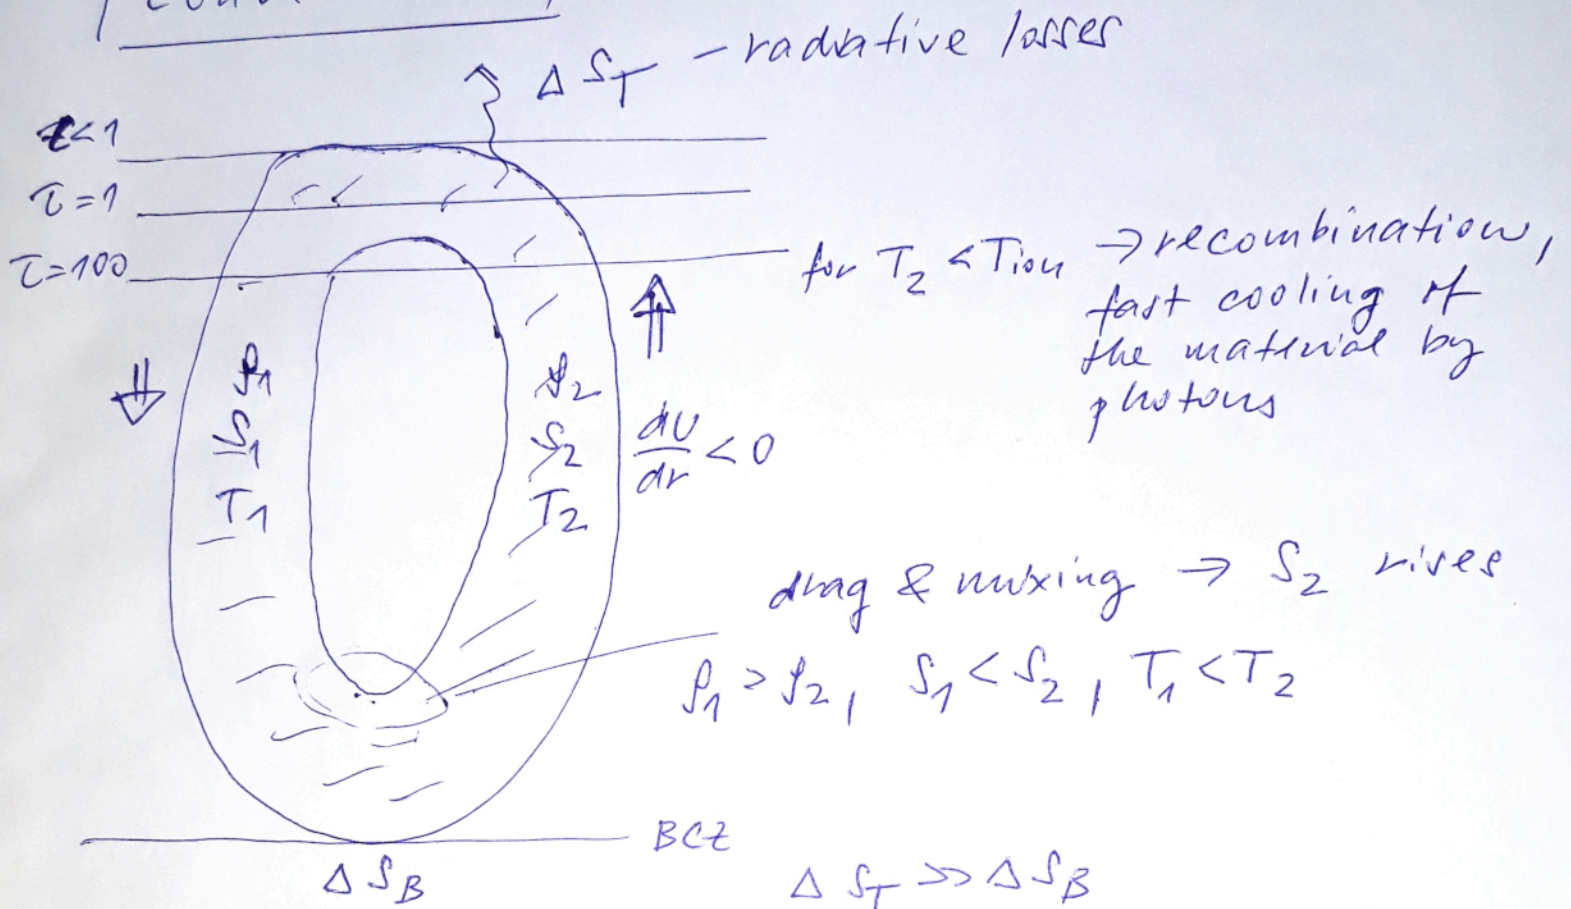 ΔS_T – radiative losses
τ<1
τ=1
τ=100
for T₂ < Tion → recombination,
fast cooling of
the material by
photons
ρ₁
S₁
T₁
ρ₂
S₂
T₂
dU/dr < 0
drag & mixing → S₂ rises
ρ₁ > ρ₂, S₁ < S₂, T₁ < T₂
BCZ
ΔS_B
ΔS_T >> ΔS_B